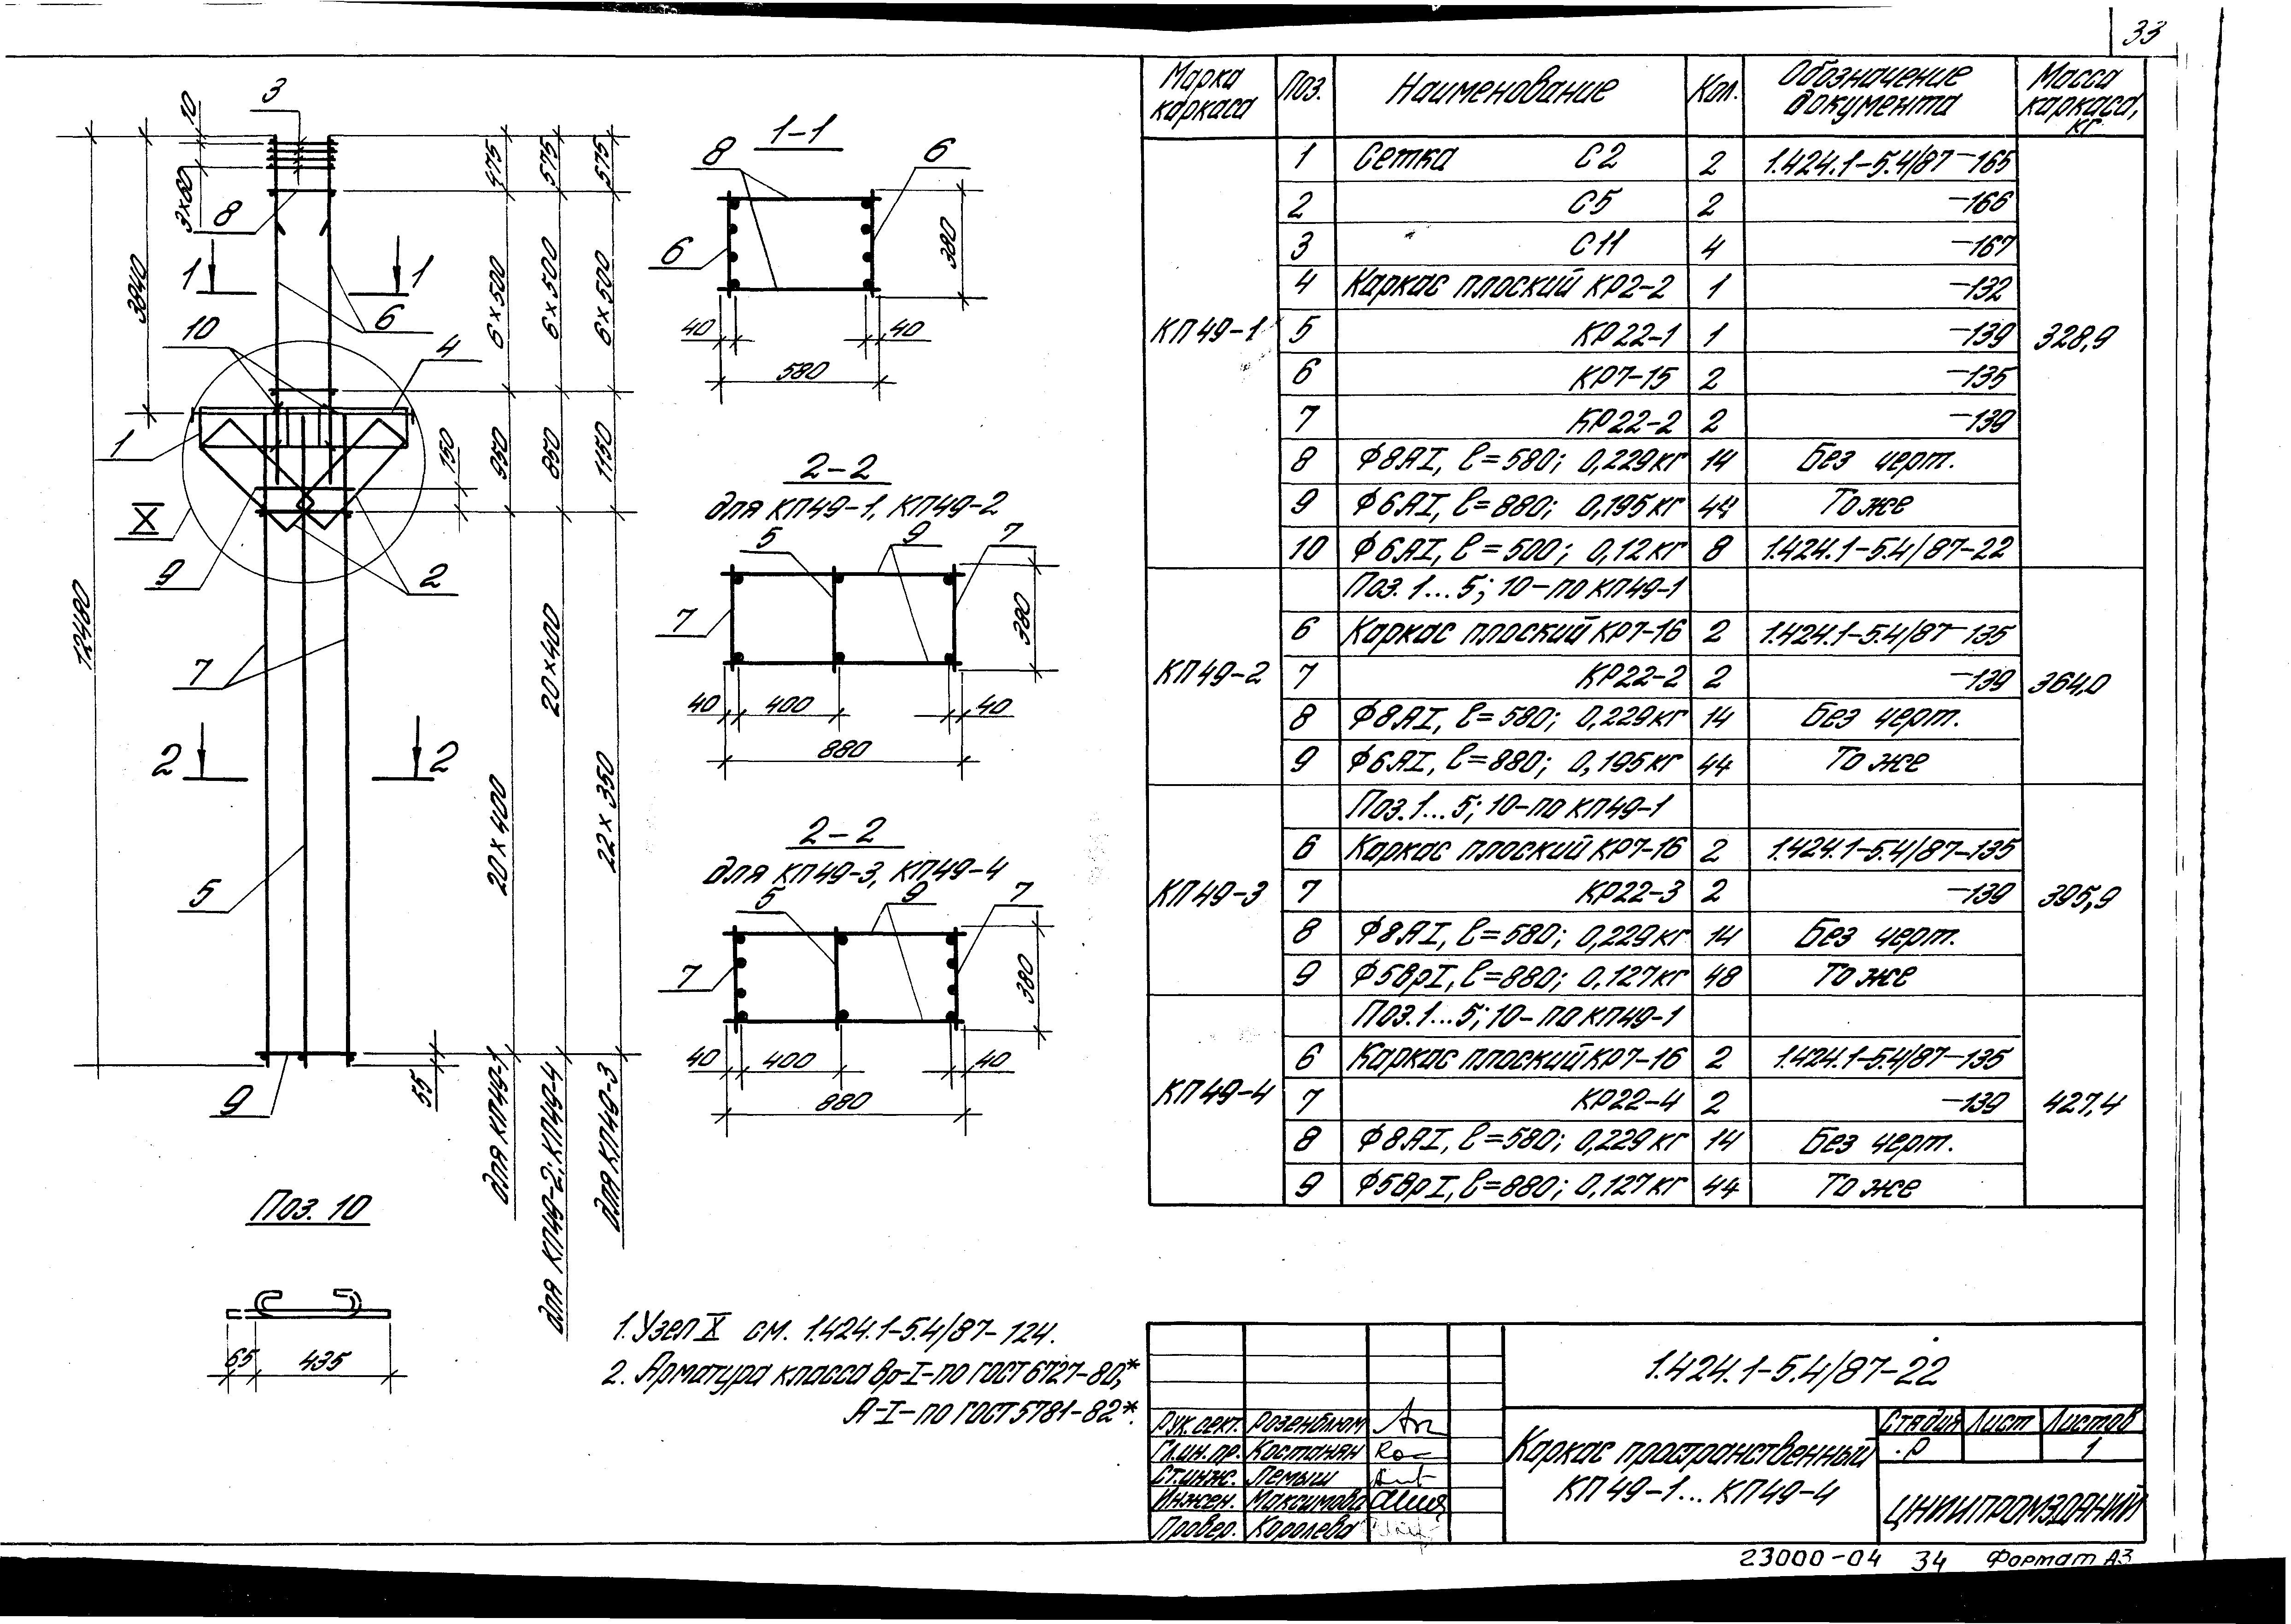 33
3
10
3×60
8
1
1
3840
10
6
4
1
150
X
9
2
12480
7
2
2
5
9
55
475
575
575
6×500
6×500
6×500
950
850
1150
20×400
20×400
22×350
для КП49-1
для КП49-2; КП49-4
для КП49-3
Поз. 10
65
435
1-1
8
6
6
380
40
40
580
2-2
для КП49-1, КП49-2
5
9
7
7
380
40
400
40
880
2-2
для КП49-3, КП49-4
5
9
7
7
380
40
400
40
880
1. Узел X см. 1.424.1-5.4/87-124.
2. Арматура класса Вр-I-по ГОСТ 6727-80,*
А-I-по ГОСТ 5781-82*.
Марка каркаса Поз. Наименование Кол. Обозначение документа Масса каркаса, кг
КП49-1
1 Сетка С2 2 1.424.1-5.4/87-165
2 С5 2 -166
3 С11 4 -167
4 Каркас плоский КР2-2 1 -132
5 КР22-1 1 -139
328,9
6 КР7-15 2 -135
7 КР22-2 2 -139
8 Ф8АI, ℓ=580; 0,229кг 14 Без черт.
9 Ф6АI, ℓ=880; 0,195кг 44 То же
10 Ф6АI, ℓ=500; 0,12кг 8 1.424.1-5.4/87-22
Поз. 1...5; 10-по КП49-1
6 Каркас плоский КР7-16 2 1.424.1-5.4/87-135
КП49-2 7 КР22-2 2 -139 364,0
8 Ф8АI, ℓ=580; 0,229кг 14 Без черт.
9 Ф6АI, ℓ=880; 0,195кг 44 То же
Поз. 1...5; 10-по КП49-1
6 Каркас плоский КР7-16 2 1.424.1-5.4/87-135
КП49-3 7 КР22-3 2 -139 395,9
8 Ф8АI, ℓ=580; 0,229кг 14 Без черт.
9 Ф5ВрI, ℓ=880; 0,127кг 48 То же
Поз. 1...5; 10-по КП49-1
6 Каркас плоский КР7-16 2 1.424.1-5.4/87-135
КП49-4 7 КР22-4 2 -139 427,4
8 Ф8АI, ℓ=580; 0,229кг 14 Без черт.
9 Ф5ВрI, ℓ=880; 0,127кг 44 То же
1.424.1-5.4/87-22
Рук. сект. Розенблюм
Гл.ин.пр. Костанян
Ст.инж. Лемыш
Инжен. Максимова
Провер. Королева
Каркас пространственный
КП49-1...КП49-4
Стадия Лист Листов
Р 1
ЦНИИПРОМЗДАНИЙ
23000-04 34 Формат А3